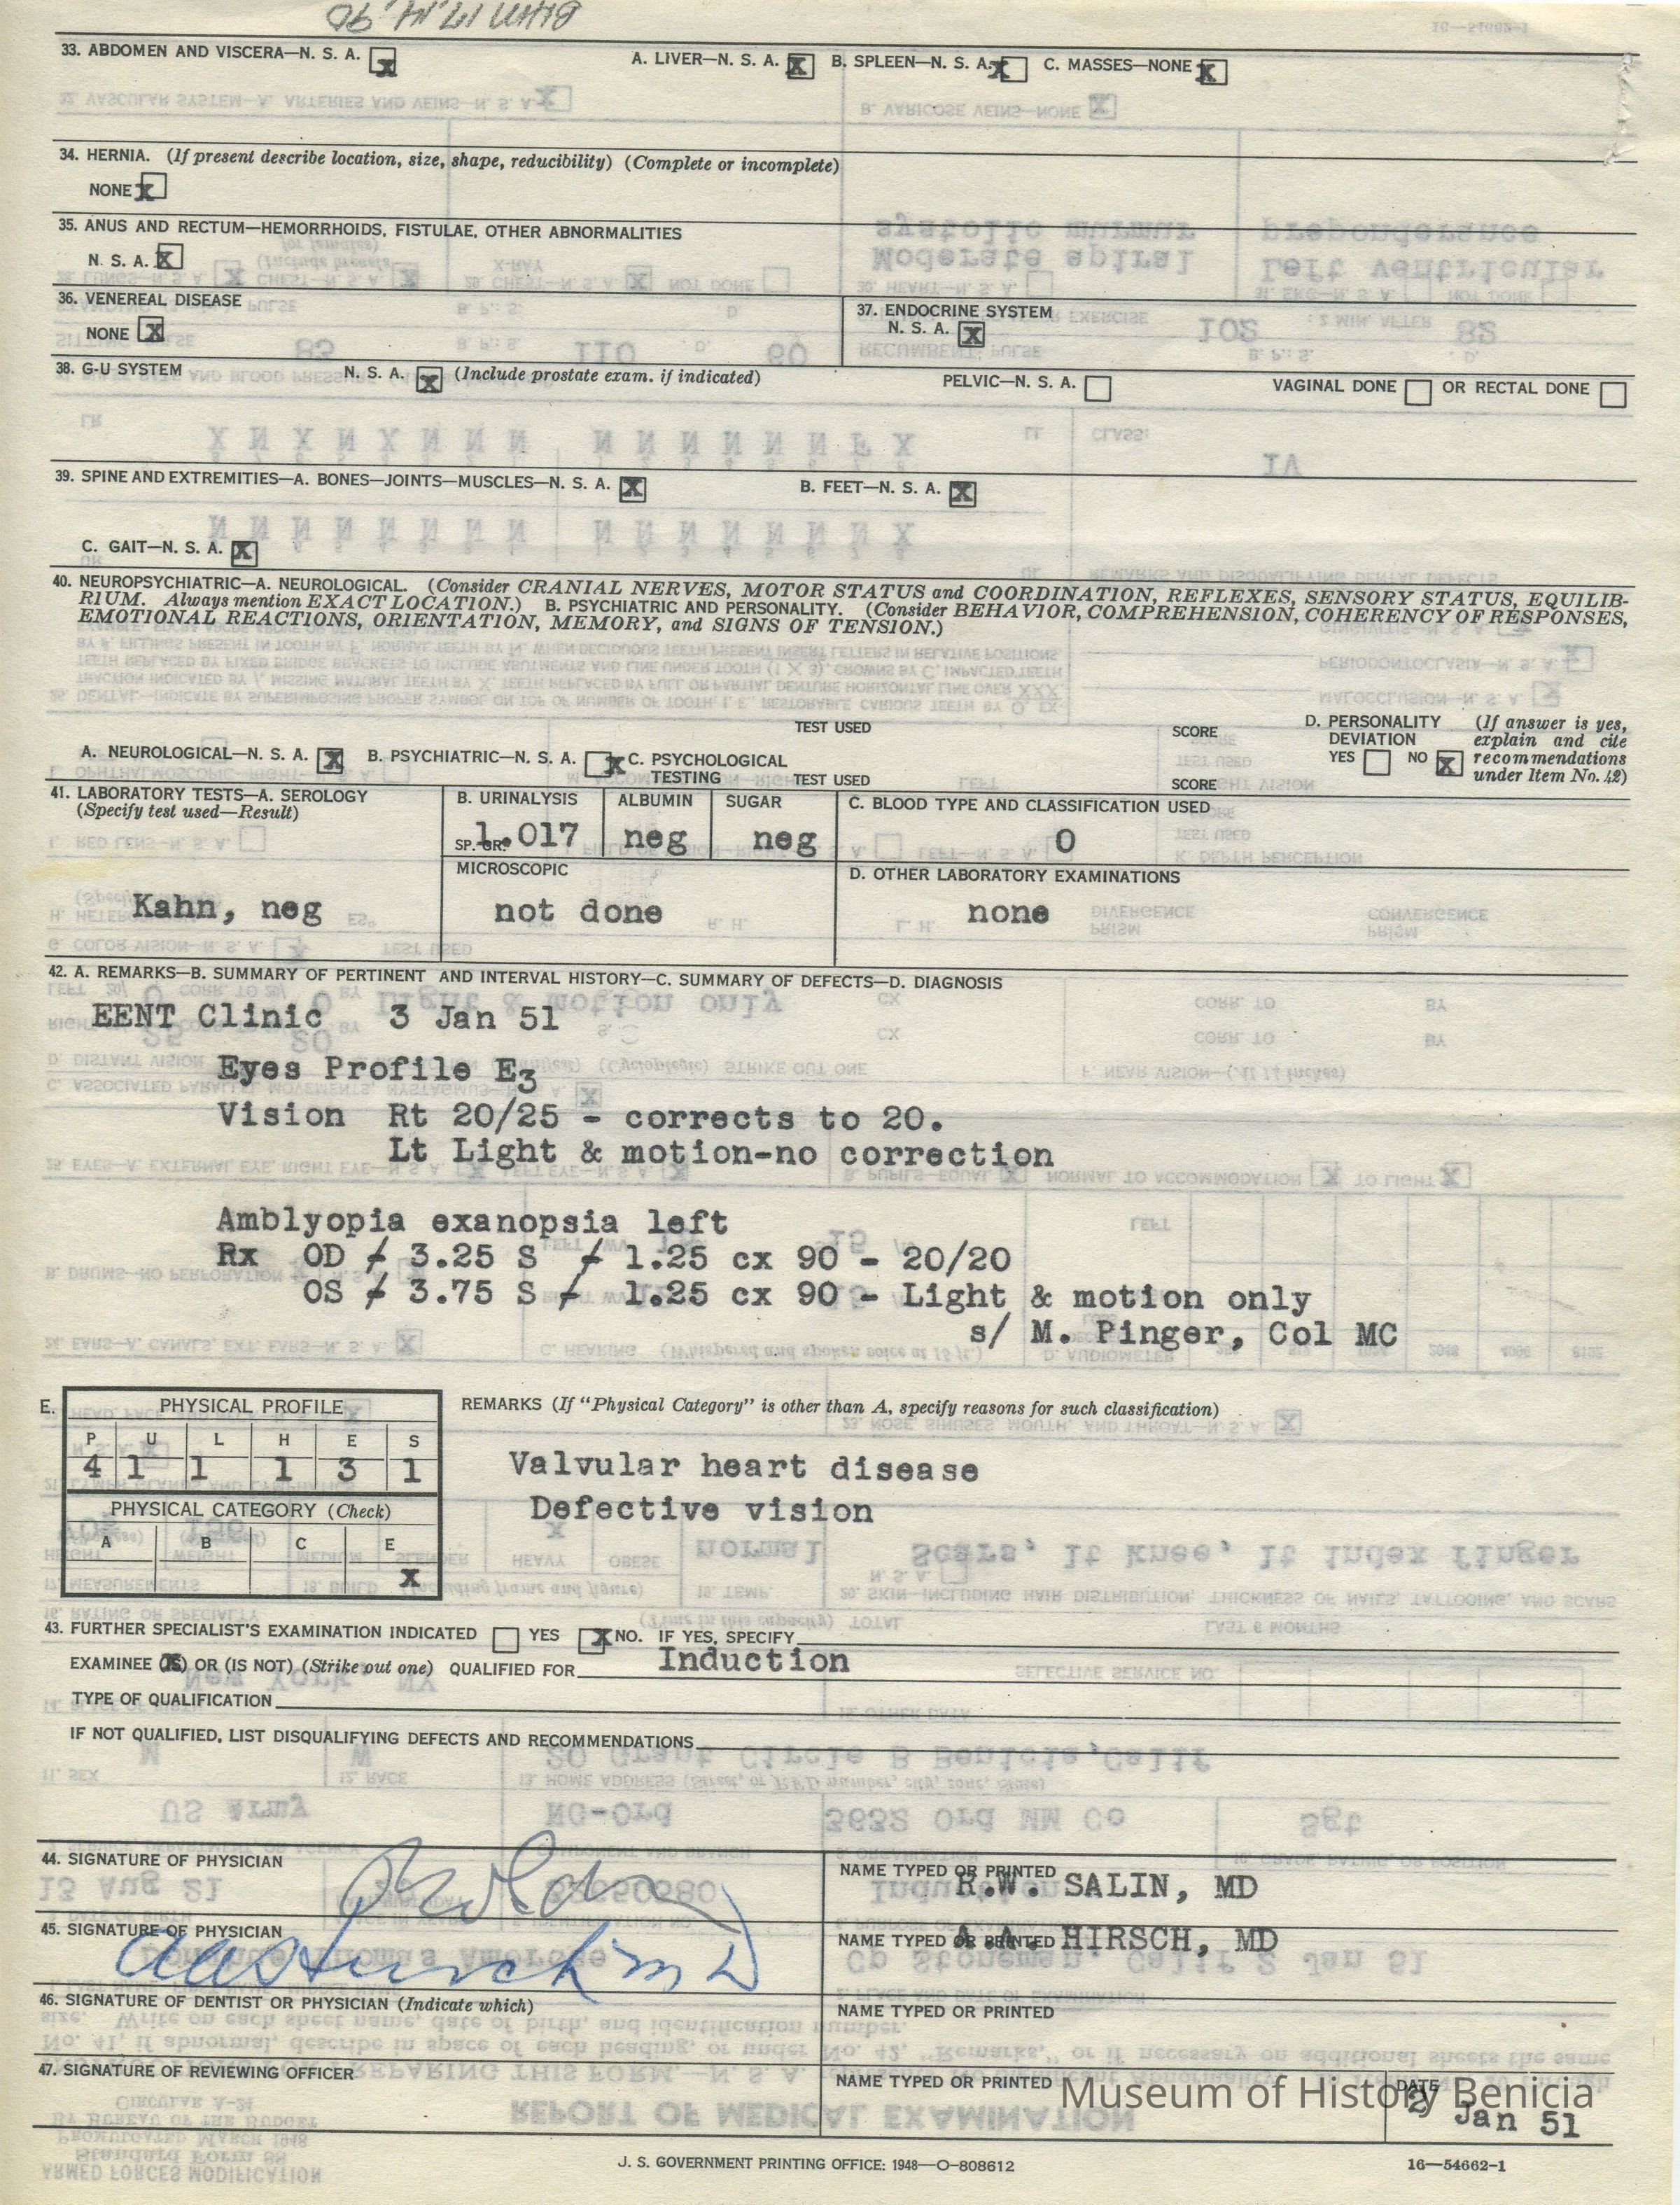 33. ABDOMEN AND VISCERA—N. S. A. X A. LIVER—N. S. A. X B. SPLEEN—N. S. A. X C. MASSES—NONE X
34. HERNIA. (If present describe location, size, shape, reducibility) (Complete or incomplete)
NONE X
35. ANUS AND RECTUM—HEMORRHOIDS, FISTULAE, OTHER ABNORMALITIES
N. S. A. X
36. VENEREAL DISEASE
NONE X
37. ENDOCRINE SYSTEM
N. S. A. X
38. G-U SYSTEM N. S. A. X (Include prostate exam. if indicated) PELVIC—N. S. A. VAGINAL DONE OR RECTAL DONE
39. SPINE AND EXTREMITIES—A. BONES—JOINTS—MUSCLES—N. S. A. X B. FEET—N. S. A. X
C. GAIT—N. S. A. X
40. NEUROPSYCHIATRIC—A. NEUROLOGICAL. (Consider CRANIAL NERVES, MOTOR STATUS and COORDINATION, REFLEXES, SENSORY STATUS, EQUILIB-
RIUM. Always mention EXACT LOCATION.) B. PSYCHIATRIC AND PERSONALITY. (Consider BEHAVIOR, COMPREHENSION, COHERENCY OF RESPONSES,
EMOTIONAL REACTIONS, ORIENTATION, MEMORY, and SIGNS OF TENSION.)
A. NEUROLOGICAL—N. S. A. X B. PSYCHIATRIC—N. S. A. X C. PSYCHOLOGICAL TESTING
TEST USED SCORE
TEST USED SCORE
D. PERSONALITY DEVIATION
YES NO X
(If answer is yes,
explain and cite
recommendations
under Item No. 42)
41. LABORATORY TESTS—A. SEROLOGY
(Specify test used—Result)
Kahn, neg
B. URINALYSIS
SP. GR. 1.017
ALBUMIN
neg
SUGAR
neg
MICROSCOPIC
not done
C. BLOOD TYPE AND CLASSIFICATION USED
O
D. OTHER LABORATORY EXAMINATIONS
none
42. A. REMARKS—B. SUMMARY OF PERTINENT AND INTERVAL HISTORY—C. SUMMARY OF DEFECTS—D. DIAGNOSIS
EENT Clinic 3 Jan 51
Eyes Profile E3
Vision Rt 20/25 - corrects to 20.
Lt Light & motion-no correction
Amblyopia exanopsia left
Rx OD ≠ 3.25 S ≠ 1.25 cx 90 - 20/20
OS ≠ 3.75 S ≠ 1.25 cx 90 - Light & motion only
s/ M. Pinger, Col MC
E.
PHYSICAL PROFILE
P U L H E S
4 1 1 1 3 1
PHYSICAL CATEGORY (Check)
A B C E
x
REMARKS (If "Physical Category" is other than A, specify reasons for such classification)
Valvular heart disease
Defective vision
43. FURTHER SPECIALIST'S EXAMINATION INDICATED YES X NO. IF YES, SPECIFY
EXAMINEE (IS) OR (IS NOT) (Strike out one) QUALIFIED FOR Induction
TYPE OF QUALIFICATION
IF NOT QUALIFIED, LIST DISQUALIFYING DEFECTS AND RECOMMENDATIONS
44. SIGNATURE OF PHYSICIAN
NAME TYPED OR PRINTED
R.W. SALIN, MD
45. SIGNATURE OF PHYSICIAN
AA Hirsch MD
NAME TYPED OR PRINTED
A.A. HIRSCH, MD
46. SIGNATURE OF DENTIST OR PHYSICIAN (Indicate which)
NAME TYPED OR PRINTED
47. SIGNATURE OF REVIEWING OFFICER
NAME TYPED OR PRINTED
DATE
2 Jan 51
Museum of History Benicia
J. S. GOVERNMENT PRINTING OFFICE: 1948—O-808612
16—54662-1